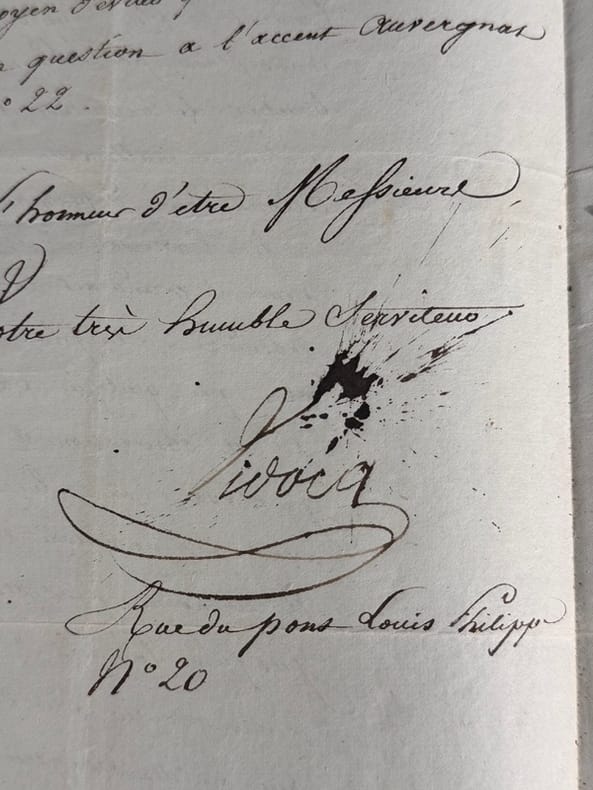 question a l'accent auvergnat
° 22.
l'honneur d'etre Messieurs,
otre très humble Serviteur
Vidocq
Rue du pont Louis Philippe
N° 20